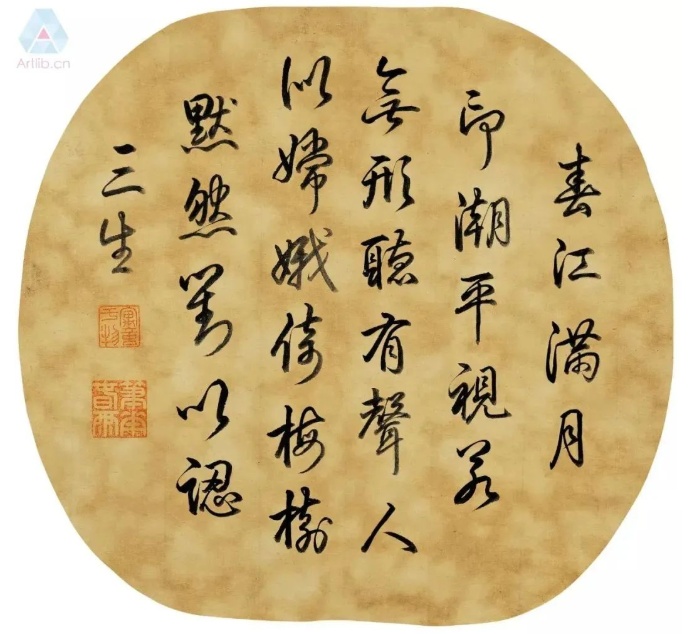 Artlib.cn
春江滿月
印潮平視若
無形聽有聲人
似嫦娥倚梅樹
默然對以認
三生